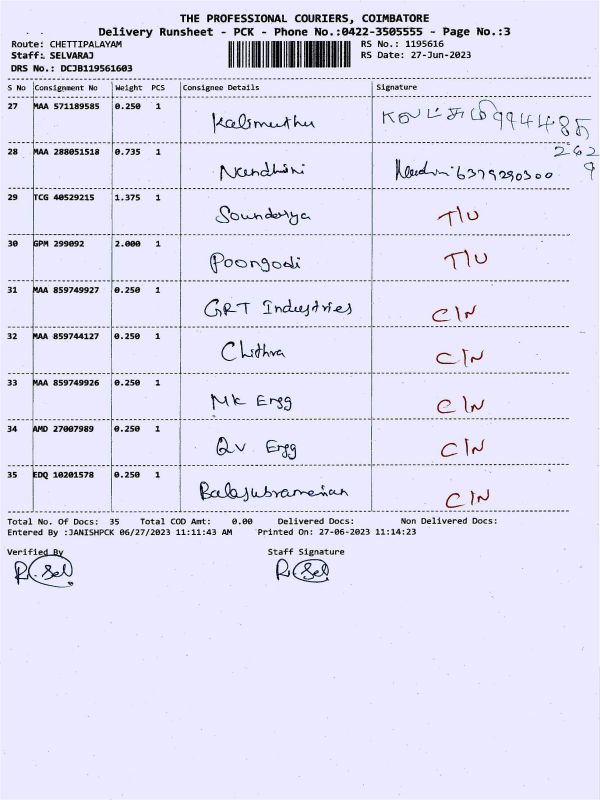 THE PROFESSIONAL COURIERS, COIMBATORE
Delivery Runsheet - PCK - Phone No.:0422-3505555 - Page No.:3
Route: CHETTIPALAYAM RS No.: 1195616
Staff: SELVARAJ RS Date: 27-Jun-2023
DRS No.: DCJB119561603
S No Consignment No Weight PCS Consignee Details Signature
27 MAA 571189585 0.250 1 Kalimuthu 9944485
262
9
28 MAA 288051518 0.735 1 Nandhini Nandhini 6379290300
29 TCG 40529215 1.375 1 Soundarya T/U
30 GPM 299092 2.000 1 Poongodi T/U
31 MAA 859749927 0.250 1 GRT Industries C/N
32 MAA 859744127 0.250 1 Chithra C/N
33 MAA 859749926 0.250 1 MK Engg C/N
34 AMD 27007989 0.250 1 QV Engg C/N
35 EDQ 10201578 0.250 1 Balasubramanian C/N
Total No. Of Docs: 35 Total COD Amt: 0.00 Delivered Docs: Non Delivered Docs:
Entered By :JANISHPCK 06/27/2023 11:11:43 AM Printed On: 27-06-2023 11:14:23
Verified By Staff Signature
R. Sel R. Sel